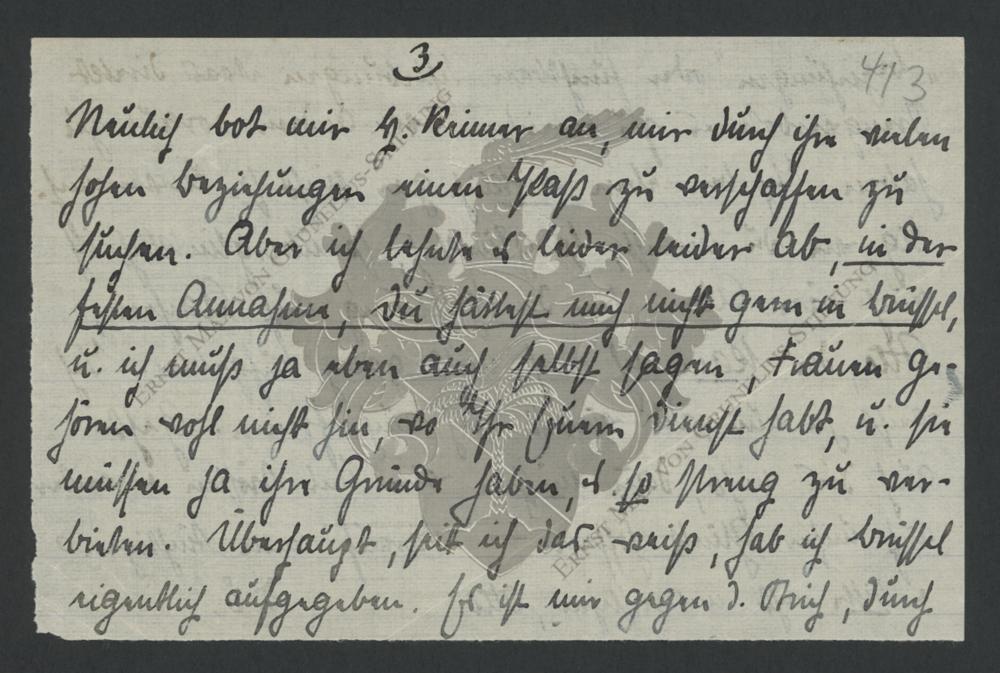 3
4/3
Neulich bot mir H. Reimer an, mir durch ihre vielen
hohen Beziehungen einen Paß zu verschaffen zu
suchen. Aber ich lehnte es leider leider ab, in der
festen Annahme, Du hättest mich nicht gern in Brüssel,
u. ich muß ja eben auch selbst sagen, Frauen ge-
hören wohl nicht hin, wo Ihr Euern Dienst habt, u. sie
müssen ja ihre Gründe haben, es so streng zu ver-
bieten. Überhaupt, seit ich das weiß, hab ich Brüssel
eigentlich aufgegeben. Es ist mir gegen d. Strich, durch